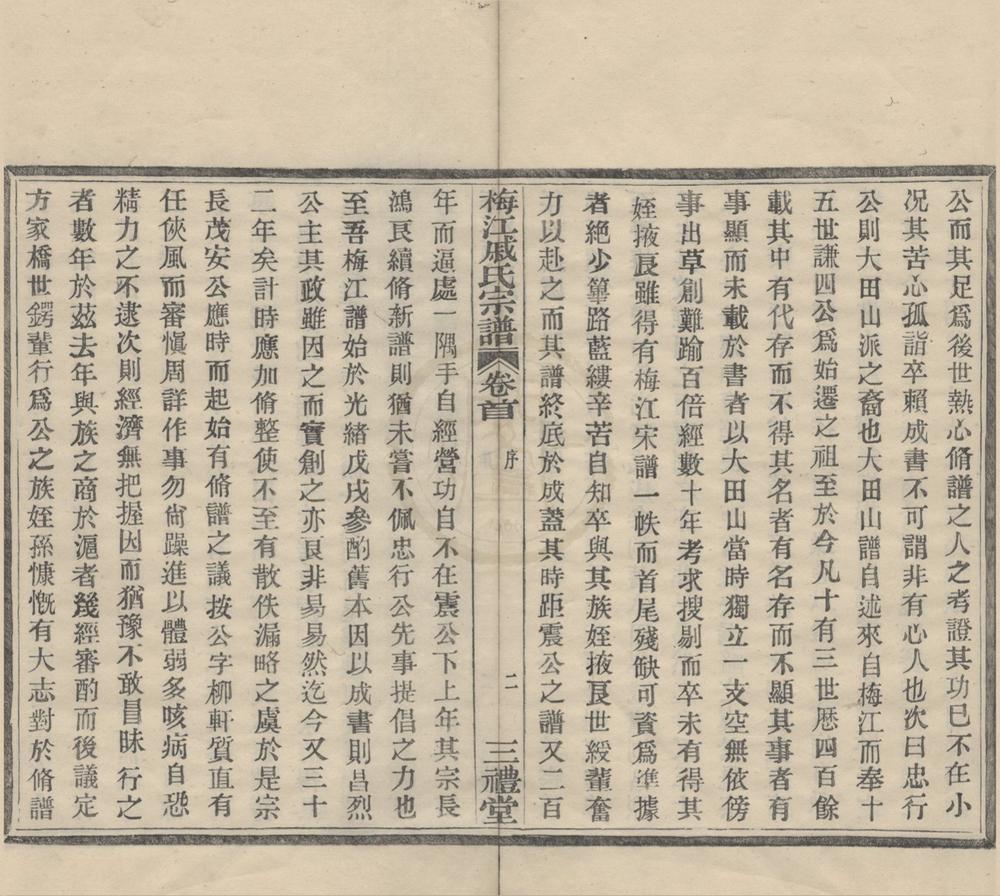 公而其足爲後世熱心脩譜之人之考證其功已不在小
况其苦心孤詣卒賴成書不可謂非有心人也次曰忠行
公則大田山派之裔也大田山譜自述來自梅江而奉十
五世謙四公爲始遷之祖至於今凡十有三世歷四百餘
載其中有代存而不得其名者有名存而不顯其事者有
事顯而未載於書者以大田山當時獨立一支空無依傍
事出草創難踰百倍經數十年考求搜剔而卒未有得其
姪掖良雖得有梅江宋譜一帙而首尾殘缺可資爲準據
者絶少篳路藍縷辛苦自知卒與其族姪掖良世綬輩奮
力以赴之而其譜終底於成蓋其時距震公之譜又二百
梅江戚氏宗譜 卷首 序 二 三禮堂
年而逼處一隅手自經營功自不在震公下上年其宗長
鴻良續脩新譜則猶未嘗不佩忠行公先事提倡之力也
至吾梅江譜始於光緒戊戌參酌舊本因以成書則昌烈
公主其政雖因之而實創之亦良非易易然迄今又三十
二年矣計時應加脩整使不至有散佚漏略之虞於是宗
長茂安公應時而起始有脩譜之議按公字柳軒質直有
任俠風而審愼周詳作事勿尙躁進以體弱多咳病自恐
精力之不逮次則經濟無把握因而猶豫不敢冒昧行之
者數年於茲去年與族之商於滬者幾經審酌而後議定
方家橋世鍔輩行爲公之族姪孫慷慨有大志對於脩譜